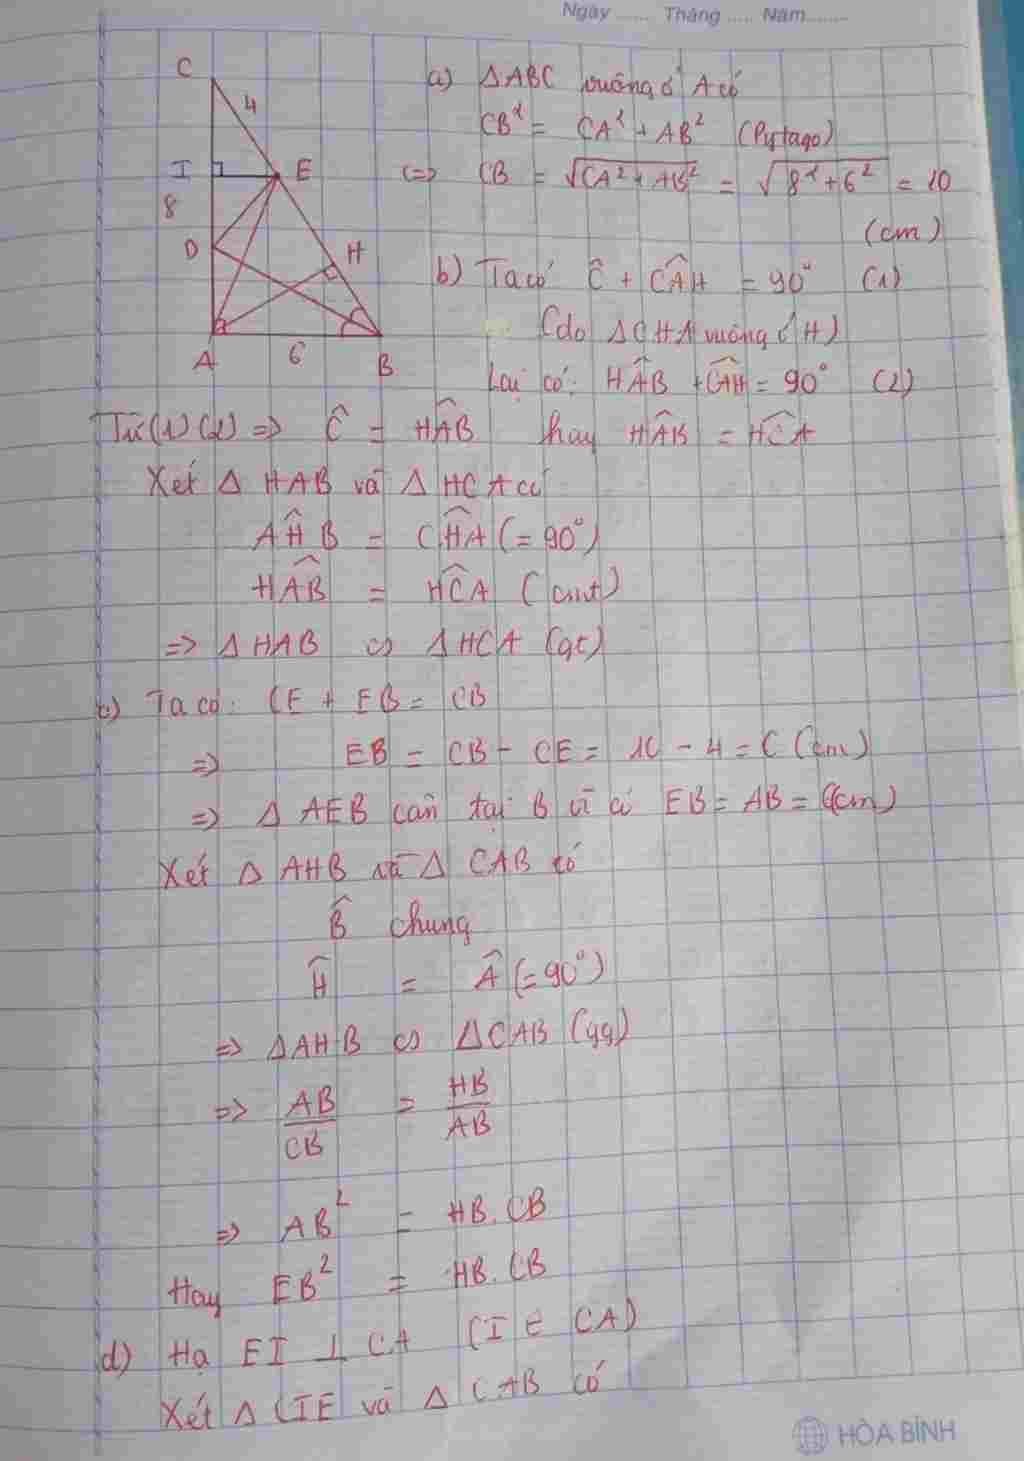 Ngày ...... Tháng ..... Năm........
C
4
I
E
8
D
H
A
6
B
a) ΔABC vuông ở A có
CB² = CA² + AB² (Pytago)
<=> CB = √(CA² + AB²) = √(8² + 6²) = 10
(cm)
b) Ta có Ĉ + CÂH = 90° (1)
(do ΔCHA vuông ở H)
Lại có: HÂB + CÂH = 90° (2)
Từ (1) (2) => Ĉ = HÂB hay HÂB = HĈA
Xét Δ HAB và Δ HCA có
AĤB = CĤA (= 90°)
HÂB = HĈA (cmt)
=> Δ HAB ∽ Δ HCA (gg)
c) Ta có: CE + EB = CB
=> EB = CB - CE = 10 - 4 = 6 (cm)
=> Δ AEB cân tại B vì có EB = AB = 6(cm)
Xét Δ AHB và Δ CAB có
B̂ chung
Ĥ = Â (= 90°)
=> ΔAHB ∽ ΔCAB (gg)
=> AB/CB = HB/AB
=> AB² = HB. CB
Hay EB² = HB. CB
d) Hạ EI ⊥ CA (I ∈ CA)
Xét Δ CIE và Δ CAB có
HÒA BÌNH